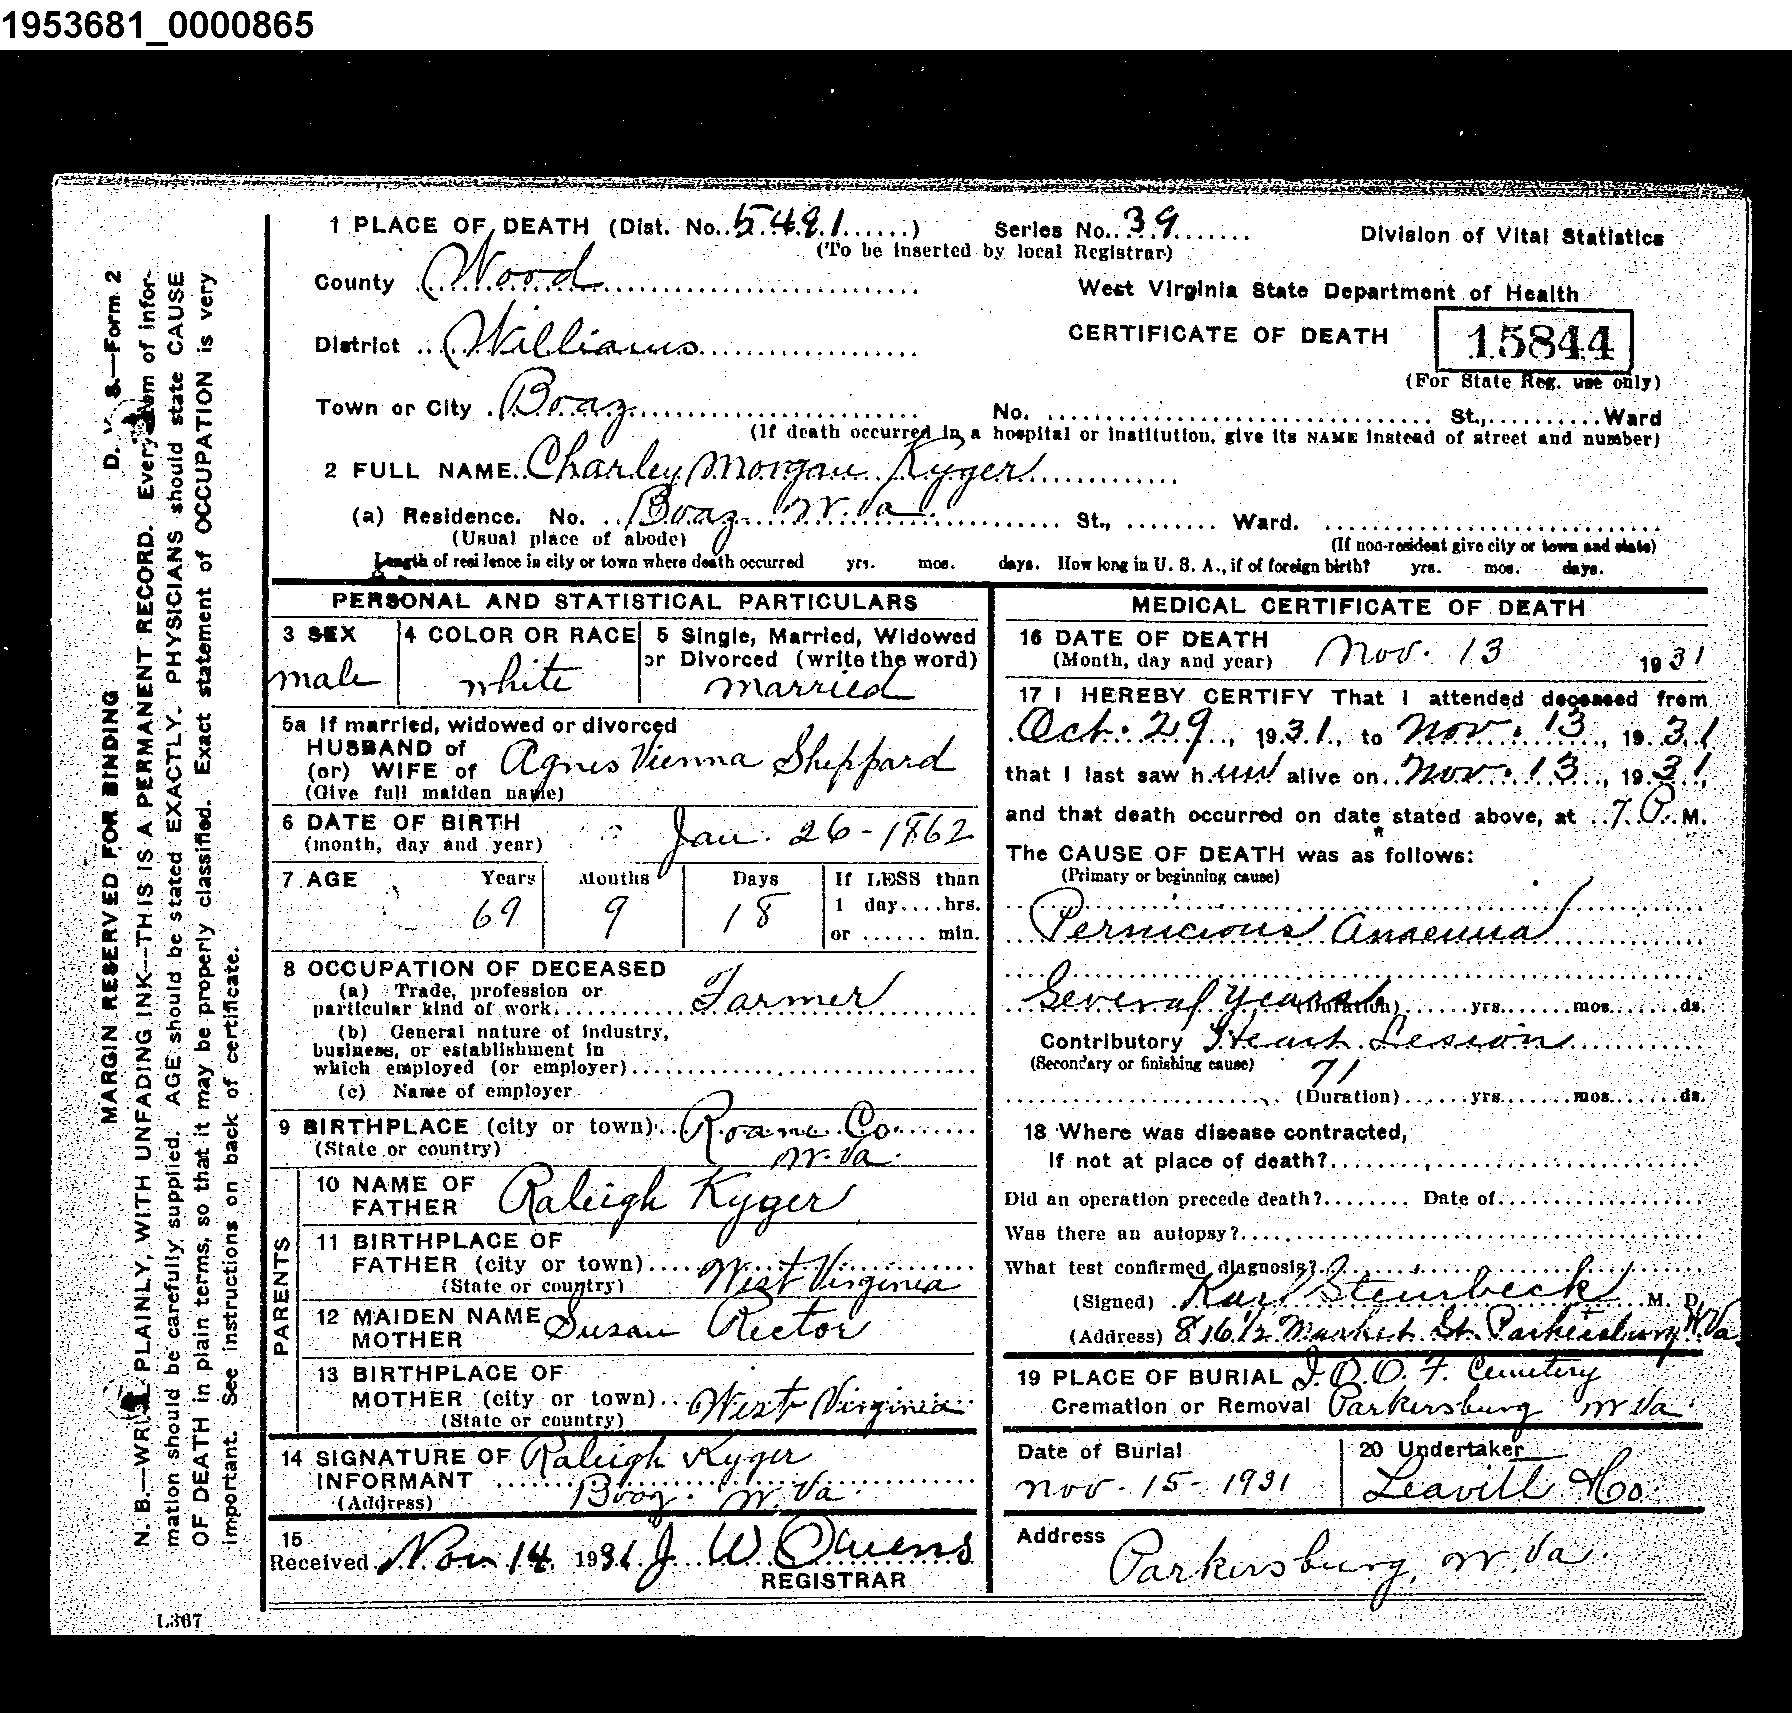 1953681_0000865
1 PLACE OF DEATH (Dist. No. 5491 ) Series No. 39 Division of Vital Statistics
(To be inserted by local Registrar)
County Wood West Virginia State Department of Health
District Williams CERTIFICATE OF DEATH 15844
(For State Reg. use only)
Town or City Boaz No. St., Ward
(If death occurred in a hospital or institution, give its NAME instead of street and number)
2 FULL NAME Charley Morgan Kyger
(a) Residence. No. Boaz W. Va St., Ward.
(Usual place of abode) (If non-resident give city or town and state)
Length of residence in city or town where death occurred yrs. mos. days. How long in U. S. A., if of foreign birth? yrs. mos. days.
PERSONAL AND STATISTICAL PARTICULARS
3 SEX 4 COLOR OR RACE 5 Single, Married, Widowed
or Divorced (write the word)
male white married
5a If married, widowed or divorced
HUSBAND of
(or) WIFE of Agnes Vienna Sheppard
(Give full maiden name)
6 DATE OF BIRTH
(month, day and year) Jan. 26-1862
7 AGE Years Months Days If LESS than
69 9 18 1 day....hrs.
or ...... min.
8 OCCUPATION OF DECEASED
(a) Trade, profession or
particular kind of work Farmer
(b) General nature of industry,
business, or establishment in
which employed (or employer)
(c) Name of employer
9 BIRTHPLACE (city or town) Roane Co
(State or country) W. Va.
PARENTS
10 NAME OF
FATHER Raleigh Kyger
11 BIRTHPLACE OF
FATHER (city or town)
(State or country) West Virginia
12 MAIDEN NAME
MOTHER Susan Rector
13 BIRTHPLACE OF
MOTHER (city or town) West Virginia
(State or country)
14 SIGNATURE OF
INFORMANT Raleigh Kyger
(Address) Boaz. W. Va
15
Received Nov 14 1931 J. W Owens
REGISTRAR
MEDICAL CERTIFICATE OF DEATH
16 DATE OF DEATH
(Month, day and year) Nov. 13 1931
17 I HEREBY CERTIFY That I attended deceased from
Oct. 29, 1931, to Nov. 13, 1931
that I last saw him alive on Nov. 13, 1931,
and that death occurred on date stated above, at 7 P. M.
The CAUSE OF DEATH was as follows:
(Primary or beginning cause)
Pernicious Anaemia
Several Years (Duration) yrs. mos. ds.
Contributory Heart Lesion
(Secondary or finishing cause) 71
(Duration) yrs. mos. ds.
18 Where was disease contracted,
If not at place of death?
Did an operation precede death? Date of
Was there an autopsy?
What test confirmed diagnosis?
(Signed) Karl Steinbeck M. D.
(Address) 816 1/2 Market St. Parkersburg W Va
19 PLACE OF BURIAL I.O.O.F. Cemetery
Cremation or Removal Parkersburg W Va
Date of Burial 20 Undertaker
Nov. 15-1931 Leavitt & Co.
Address
Parkersburg, W. Va.
D. V. S.—Form 2
MARGIN RESERVED FOR BINDING
N. B.—WRITE PLAINLY, WITH UNFADING INK—THIS IS A PERMANENT RECORD. Every item of infor-
mation should be carefully supplied. AGE should be stated EXACTLY. PHYSICIANS should state CAUSE
OF DEATH in plain terms, so that it may be properly classified. Exact statement of OCCUPATION is very
important. See instructions on back of certificate.
L367